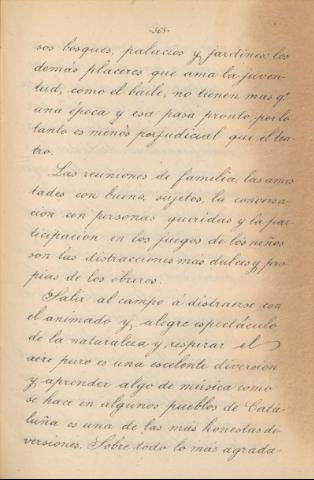 -365-
sos bosques, palacios y jardines: los
demás placeres que ama la juven-
tud, como el baile, no tienen mas qe
una época y esa pasa pronto por lo
tanto es menos perjudicial que el tea-
tro.
Las reuniones de familia, las amis
tades con buenos sujetos, la conversa-
cion con personas queridas y la par-
ticipacion en los juegos de los niños
son las distracciones más dulces y pro-
pias de los obreros.
Salir al campo á distraerse con
el animado y alegre espectáculo
de la naturaleza y respirar el
aire puro es una escelente diversion
y aprender algo de música como
se hace en algunos pueblos de Cata-
luña es una de las mas honestas di-
versiones. Sobre todo lo más agrada-